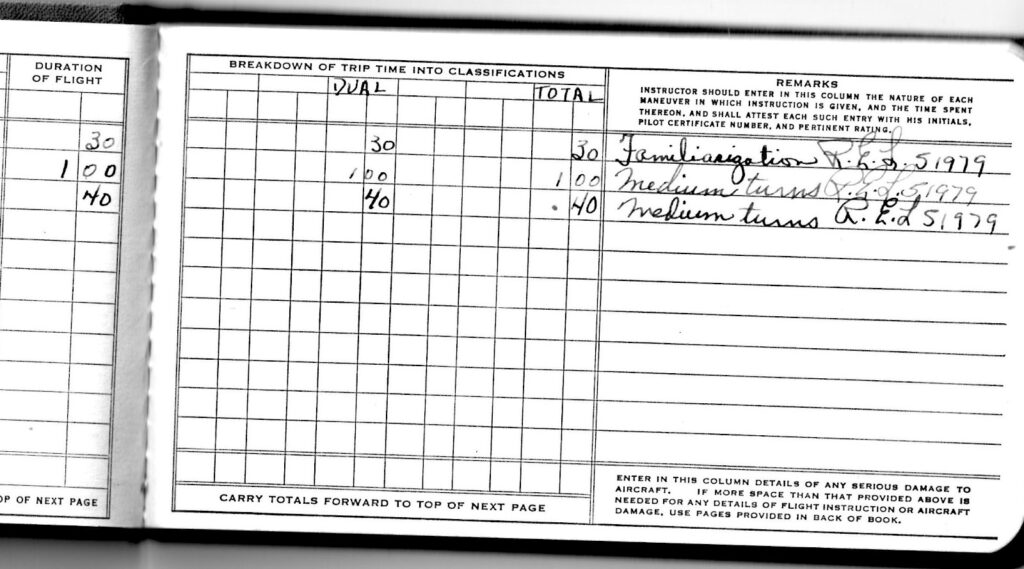 DURATION
OF FLIGHT
BREAKDOWN OF TRIP TIME INTO CLASSIFICATIONS
REMARKS
INSTRUCTOR SHOULD ENTER IN THIS COLUMN THE NATURE OF EACH
MANEUVER IN WHICH INSTRUCTION IS GIVEN, AND THE TIME SPENT
THEREON, AND SHALL ATTEST EACH SUCH ENTRY WITH HIS INITIALS,
PILOT CERTIFICATE NUMBER, AND PERTINENT RATING.
DUAL TOTAL
30 30 30 Familiarization R.E.L. S1979
1 00 1 00 1 00 Medium turns R.E.L. S1979
40 40 . 40 Medium turns R.E.L S1979
OP OF NEXT PAGE
CARRY TOTALS FORWARD TO TOP OF NEXT PAGE
ENTER IN THIS COLUMN DETAILS OF ANY SERIOUS DAMAGE TO
AIRCRAFT. IF MORE SPACE THAN THAT PROVIDED ABOVE IS
NEEDED FOR ANY DETAILS OF FLIGHT INSTRUCTION OR AIRCRAFT
DAMAGE, USE PAGES PROVIDED IN BACK OF BOOK.